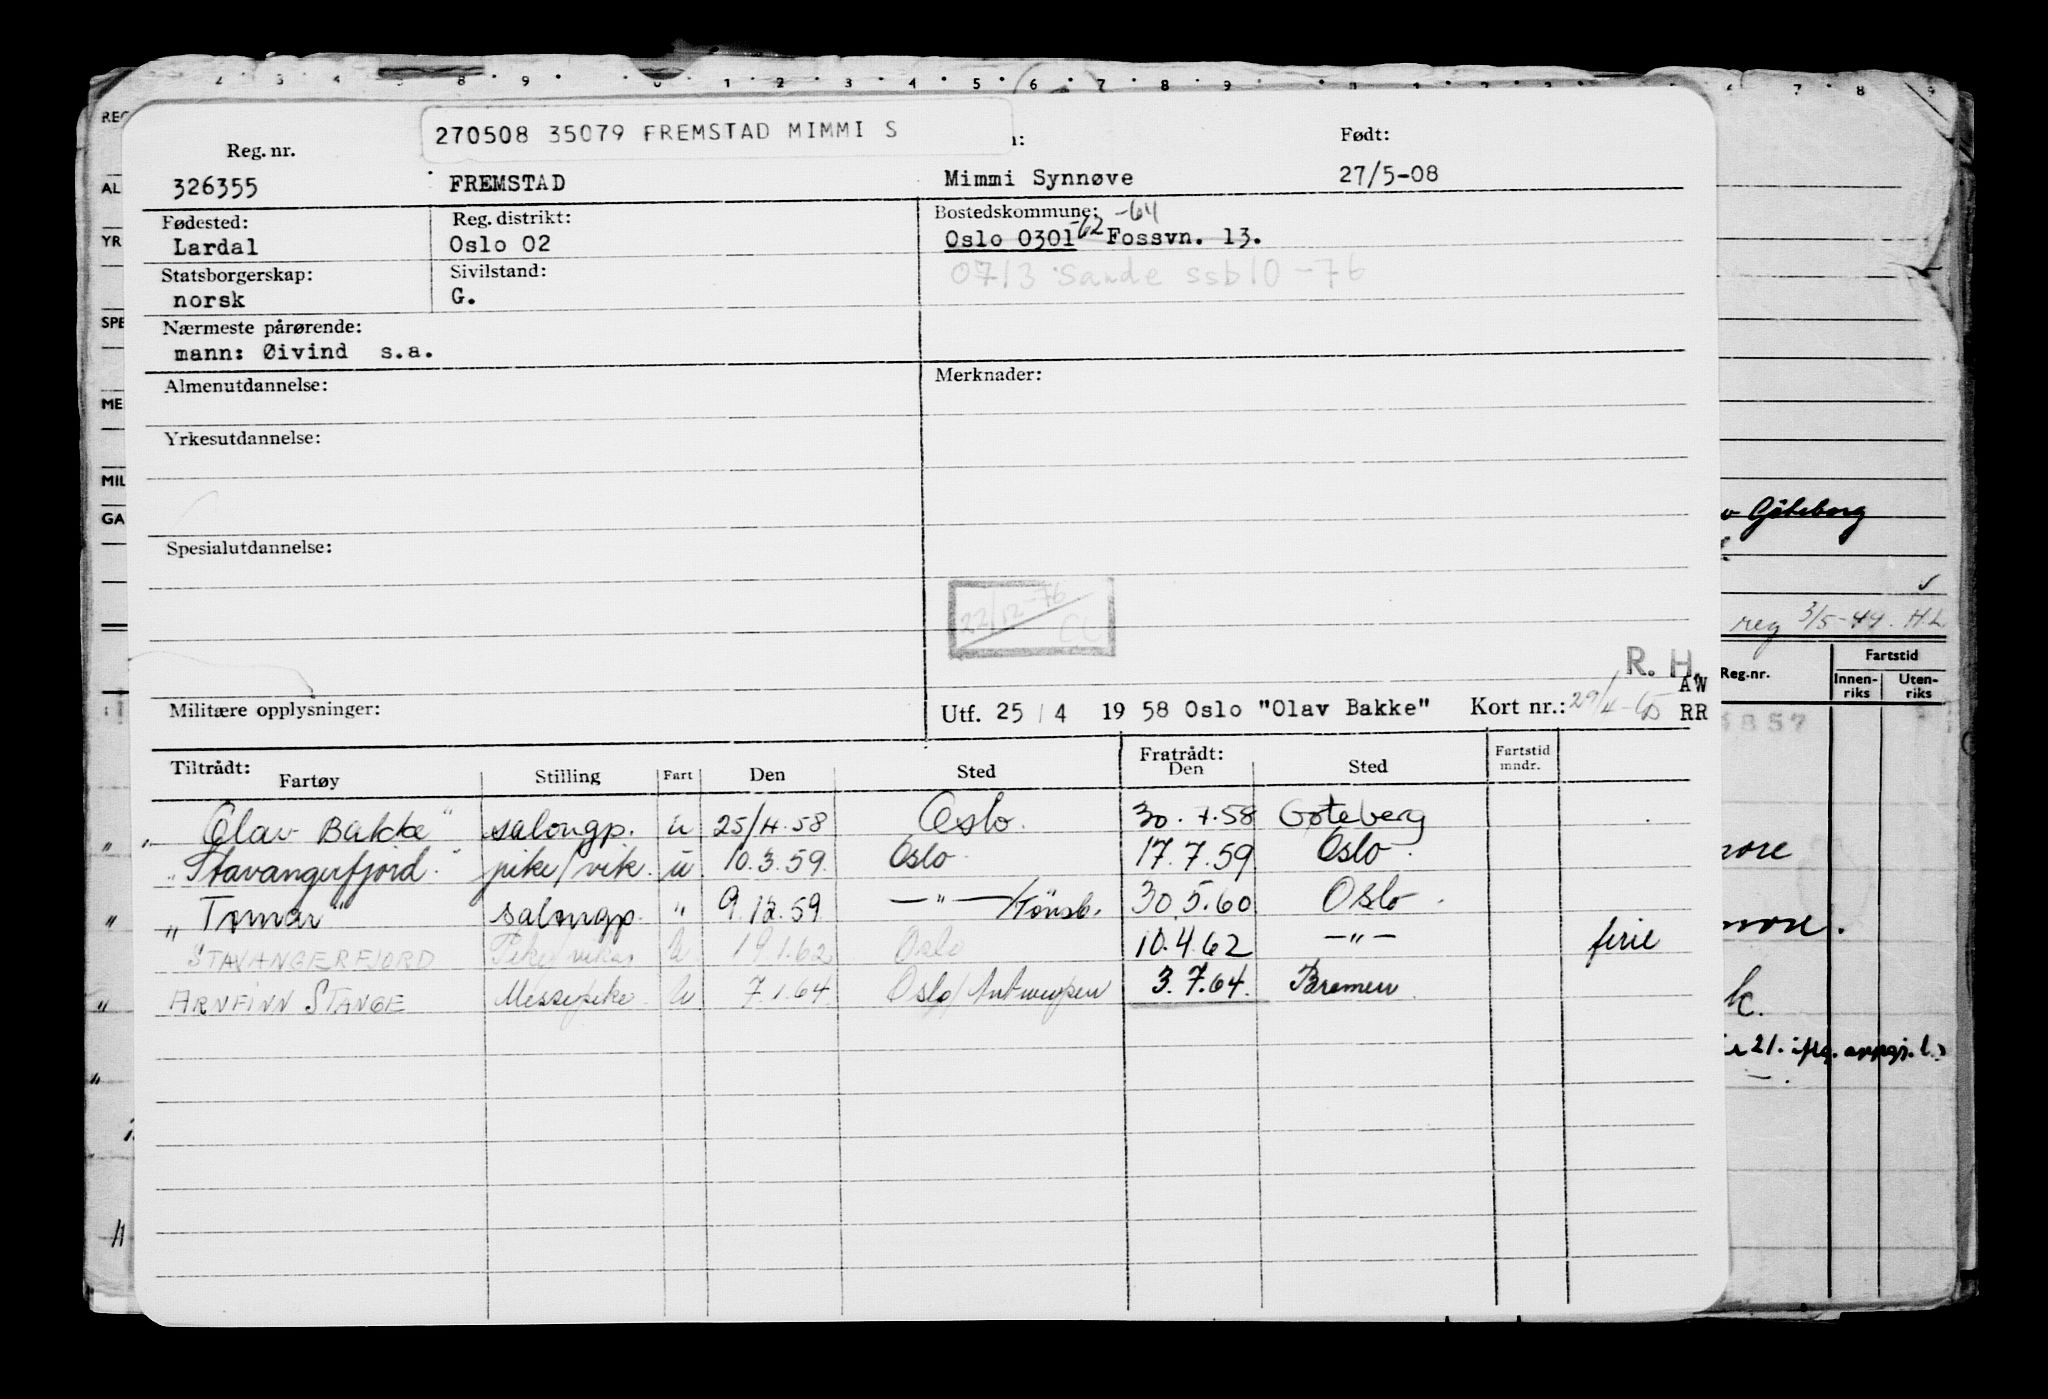 270508 35079 FREMSTAD MIMMI S
Reg. nr. Født:
326355 FREMSTAD Mimmi Synnøve 27/5-08
Fødested: Reg. distrikt: Bostedskommune: -64
Lardal Oslo 02 Oslo 0301 -62 Fossvn. 13.
Statsborgerskap: Sivilstand: 0713 Sande ssb10-76
norsk G.
Nærmeste pårørende:
mann: Øivind s.a.
Almenutdannelse: Merknader:
Yrkesutdannelse:
Spesialutdannelse:
22/12-76
R. H.
AW
Militære opplysninger: Utf. 25/4 1958 Oslo "Olav Bakke" Kort nr.: RR
Tiltrådt: Fratrådt:
Fartøy Stilling Fart Den Sted Den Sted Fartstid mndr.
"Olav Bakke" salongp. u 25/4.58 Oslo. 30.7.58 Gøteberg
"Stavangerfjord" pike/vik. u 10.3.59. Oslo 17.7.59 Oslo.
"Tomar" salongp. " 9.12.59 —"—/Tönsb. 30.5.60 Oslo.
STAVANGERFJORD Pike/vikar u 19.1.62 Oslo 10.4.62 —"— ferie
ARNFINN STANGE Messepike u 7.1.64. Oslo/Antwerpen 3.7.64. Bremen
REG
AL
YR
SPE
ME
MIL
GA
Göteborg
reg 3/5-49. H.L
Reg.nr. Fartstid
Innen-riks Uten-riks